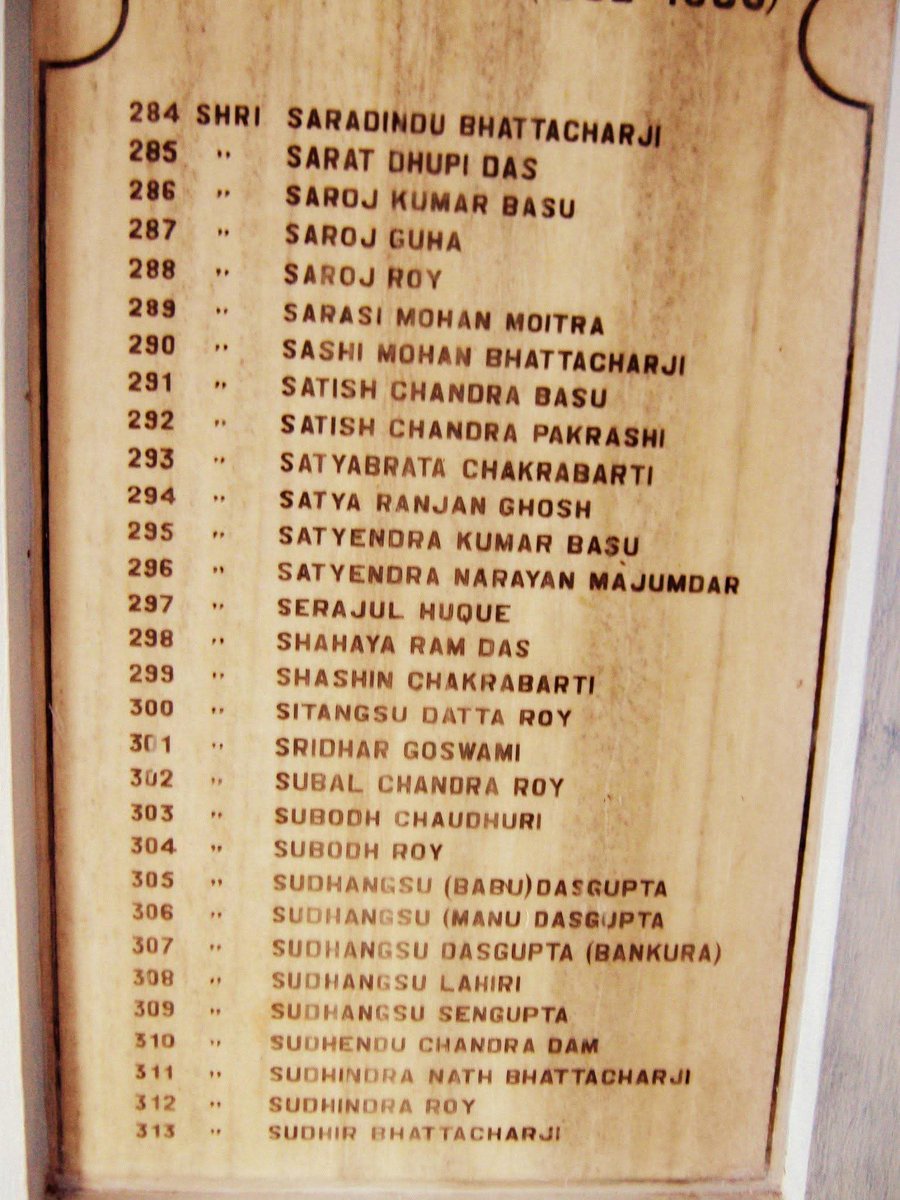 284 SHRI SARADINDU BHATTACHARJI
285 " SARAT DHUPI DAS
286 " SAROJ KUMAR BASU
287 " SAROJ GUHA
288 " SAROJ ROY
289 " SARASI MOHAN MOITRA
290 " SASHI MOHAN BHATTACHARJI
291 " SATISH CHANDRA BASU
292 " SATISH CHANDRA PAKRASHI
293 " SATYABRATA CHAKRABARTI
294 " SATYA RANJAN GHOSH
295 " SATYENDRA KUMAR BASU
296 " SATYENDRA NARAYAN MAJUMDAR
297 " SERAJUL HUQUE
298 " SHAHAYA RAM DAS
299 " SHASHIN CHAKRABARTI
300 " SITANGSU DATTA ROY
301 " SRIDHAR GOSWAMI
302 " SUBAL CHANDRA ROY
303 " SUBODH CHAUDHURI
304 " SUBODH ROY
305 " SUDHANGSU (BABU)DASGUPTA
306 " SUDHANGSU (MANU DASGUPTA
307 " SUDHANGSU DASGUPTA (BANKURA)
308 " SUDHANGSU LAHIRI
309 " SUDHANGSU SENGUPTA
310 " SUDHENDU CHANDRA DAM
311 " SUDHINDRA NATH BHATTACHARJI
312 " SUDHINDRA ROY
313 " SUDHIR BHATTACHARJI